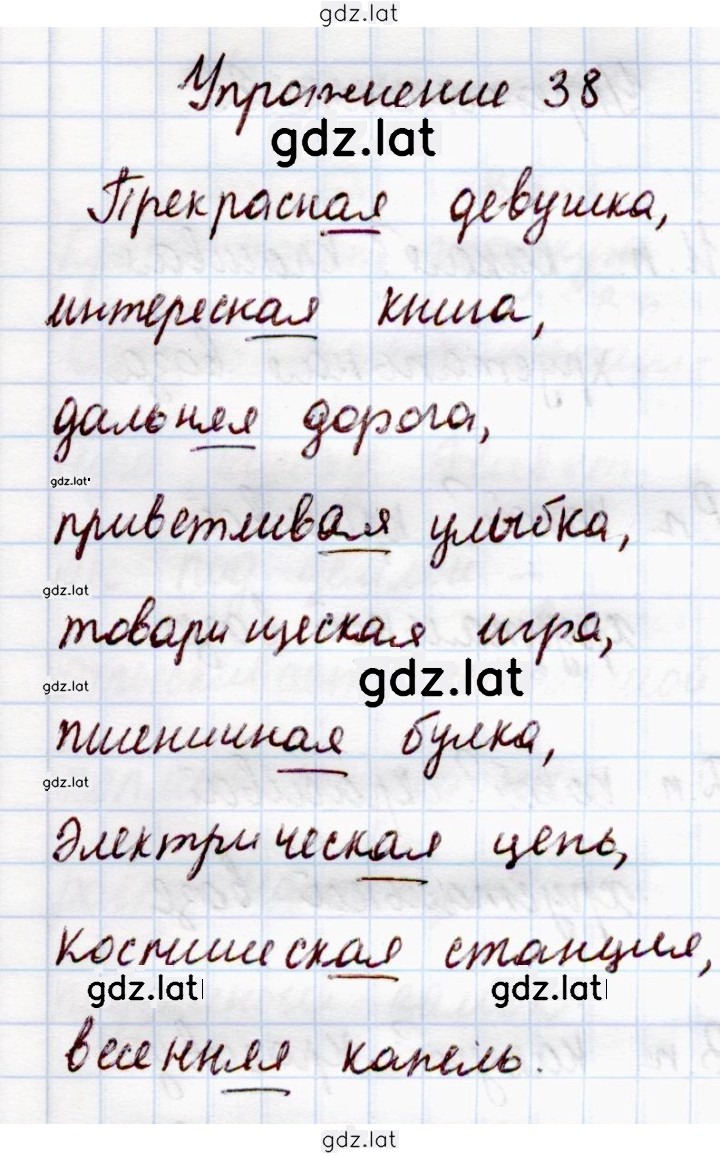 gdz.lat
Упражнение 38
gdz.lat
Прекрасная девушка,
интереская книга,
дальняя дорога,
gdz.lat
приветливая улыбка,
gdz.lat
товарищеская игра,
gdz.lat
gdz.lat
пшеничная булка,
gdz.lat
электрическая цепь,
космическая станция,
gdz.lat gdz.lat
весенняя капель.
gdz.lat